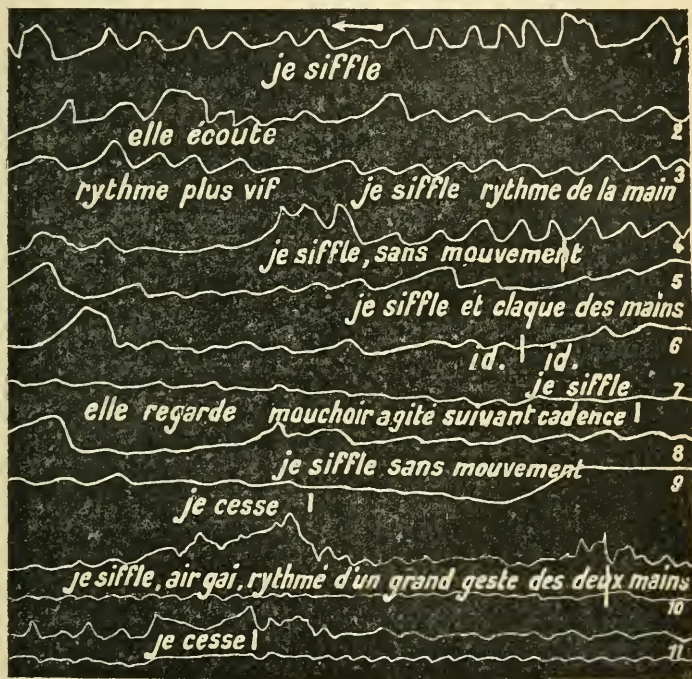 1
je siffle
2
elle écoute
3
rythme plus vif je siffle rythme de la main
4
je siffle, sans mouvement
5
je siffle et claque des mains
6
id. id.
je siffle
7
elle regarde mouchoir agité suivant cadence
8
je siffle sans mouvement
9
je cesse
je siffle, air gai, rythmé d'un grand geste des deux mains
10
je cesse
11